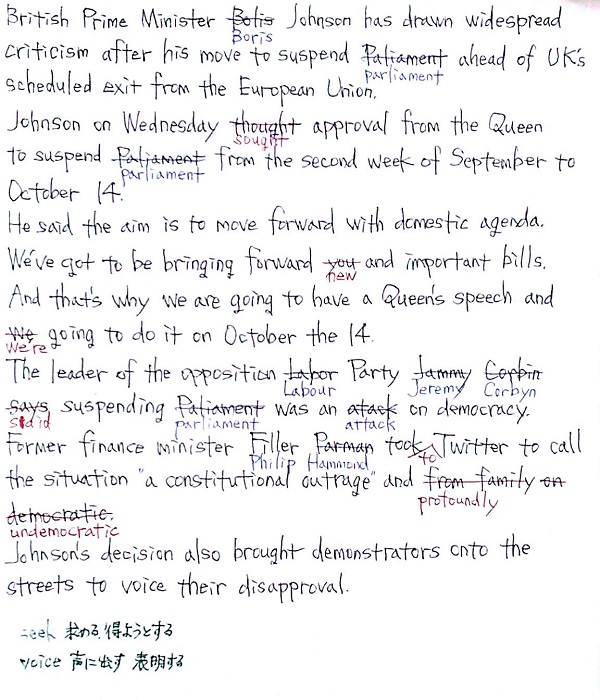 British Prime Minister Botis Johnson has drawn widespread
Boris
criticism after his move to suspend Paliament ahead of UK's
parliament
scheduled exit from the European Union.
Johnson on Wednesday thought approval from the Queen
sought
to suspend Paliament from the second week of September to
parliament
October 14.
He said the aim is to move forward with domestic agenda.
We've got to be bringing forward you and important bills.
new
And that's why we are going to have a Queen's speech and
We going to do it on October the 14.
We're
The leader of the opposition Labor Party Jammy Coppin
Labour Jeremy Corbyn
says suspending Paliament was an atack on democracy.
said parliament attack
Former finance minister Filler Parman took Twitter to call
Philip Hammond to
the situation "a constitutional outrage" and from family on
profoundly
democratic.
undemocratic
Johnson's decision also brought demonstrators onto the
streets to voice their disapproval.
seek 求める 得ようとする
voice 声に出す 表明する